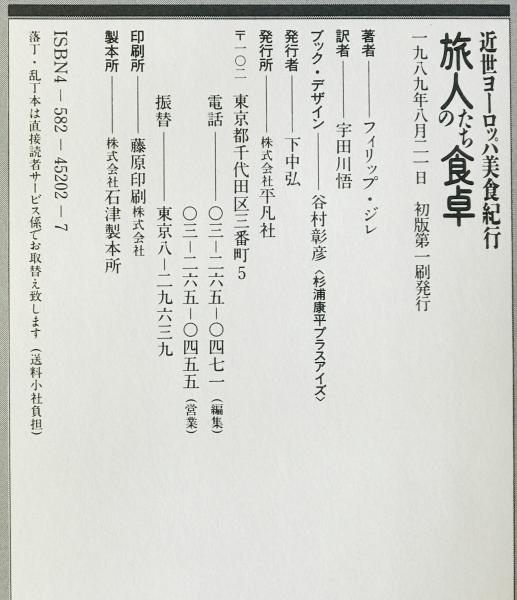 近世ヨーロッパ美食紀行
旅人たちの食卓
一九八九年八月二一日　初版第一刷発行
著者――――フィリップ・ジレ
訳者――――宇田川悟
ブック・デザイン――――谷村彰彦〈杉浦康平プラスアイズ〉
発行者――――下中弘
発行所――――株式会社平凡社
〒一〇二　東京都千代田区三番町5
電話――――〇三―二六五―〇四七一（編集）
〇三―二六五―〇四五五（営業）
振替――――東京八―二九六三九
印刷所――――藤原印刷株式会社
製本所――――株式会社石津製本所
ISBN4－582－45202－7
落丁・乱丁本は直接読者サービス係でお取替え致します（送料小社負担）